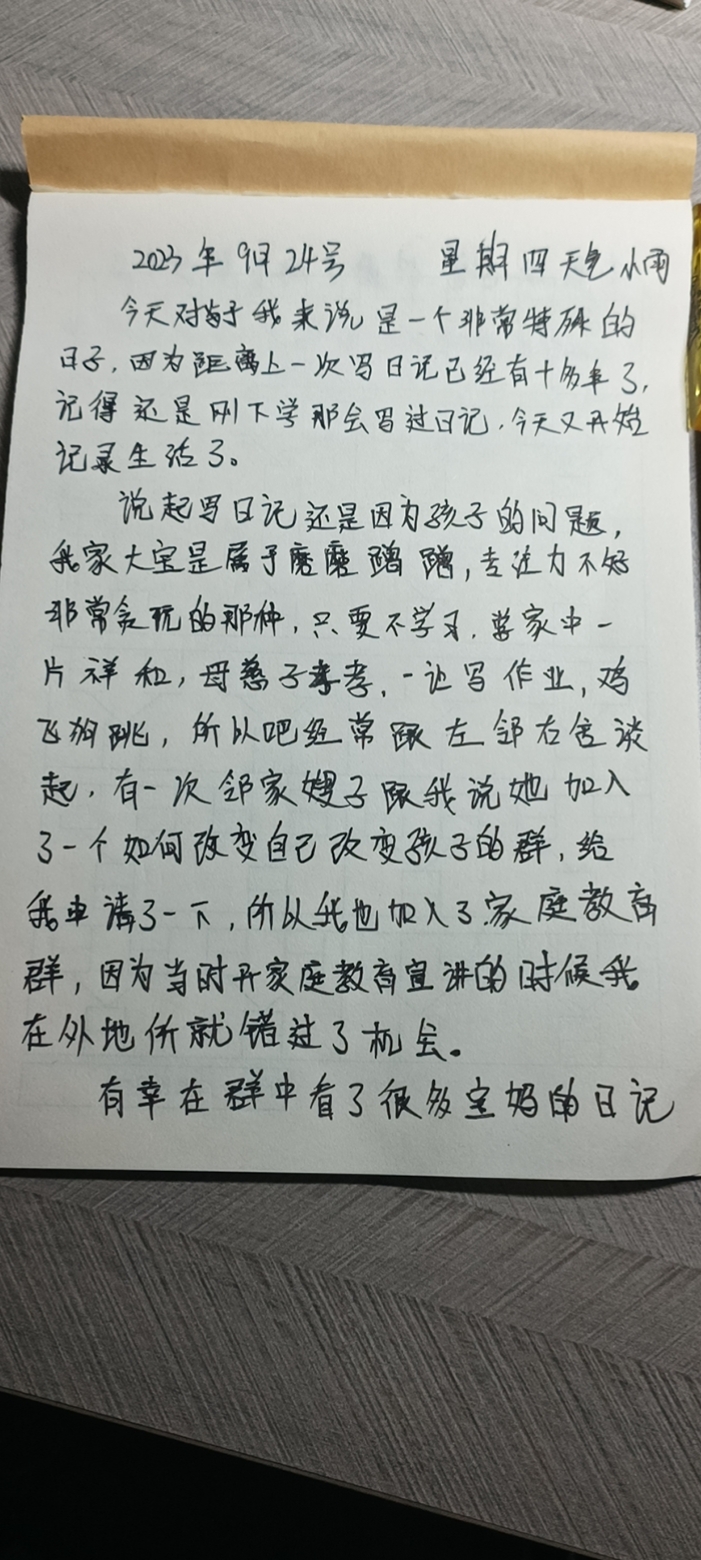 2023年9月24号 星期四天气小雨
今天对于我来说是一个非常特殊的
日子,因为距离上一次写日记已经有十多年了,
记得还是刚下学那会写过日记,今天又开始
记录生活了。
说起写日记还是因为孩子的问题,
我家大宝是属于磨磨蹭蹭,专注力不好
非常贪玩的那种,只要不学习,学家中一
片祥和,母慈子孝,一让写作业,鸡
飞狗跳,所以吧经常跟左邻右舍谈
起,有一次邻家嫂子跟我说她加入
了一个如何改变自己改变孩子的群,给
我申请了一下,所以我也加入了家庭教育
群,因为当时开家庭教育宣讲的时候我
在外地所就错过了机会。
有幸在群中看了很多宝妈的日记